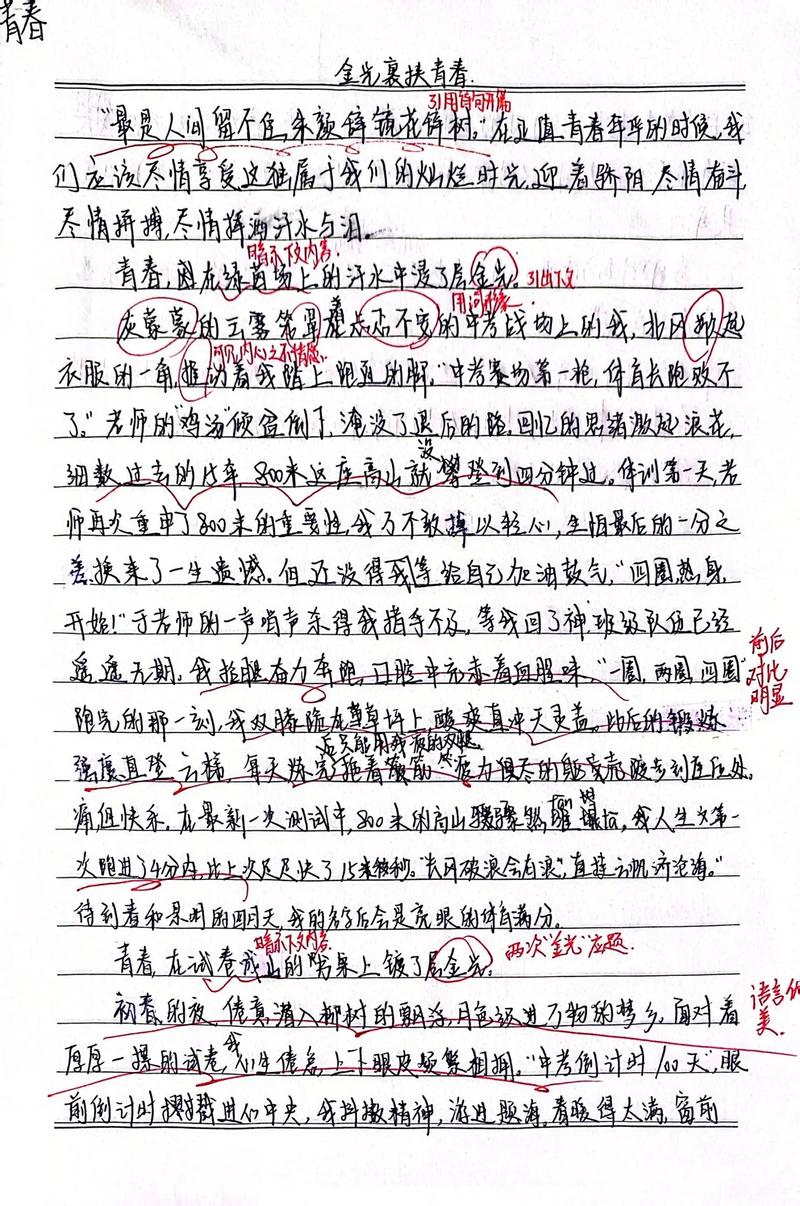 青春
金光裹挟青春.
引用诗句开篇
“最是人间留不住,朱颜辞镜花辞树。”在正值青春年华的时候,我
们应该尽情享受这独属于我们的灿烂时光,迎着骄阳,尽情奋斗,
尽情拼搏,尽情挥洒汗水与泪。
暗示下文内容.
青春,困在绿茵场上的汗水中浸了层金光。引出下文
用词形象.
灰蒙蒙的云雾笼罩着忐忑不安的中考战场上的我,北风掀起
可见内心之不情愿.
衣服的一角,推动着我踏上跑道的脚。“中考赛场第一枪,体育长跑败不
了。”老师的“鸡汤”倾盆倒下,淹没了退后的路,回忆的思绪激起浪花,
细数过去的15年,800米这座高山就没攀登到四分钟过。体训第一天,老
师再次重申了800米的重要性,我万不敢掉以轻心,生怕最后的一分之
差换来了一生遗憾。但还没得我等给自己加油鼓气,“四圈,热身,
开始!”于老师的一声哨声杀得我措手不及,等我回了神,班级队伍已经
遥遥无期。我抬腿奋力奔跑,口腔中充斥着血腥味,“一圈,两圈,四圈”
前后对比明显
跑完的那一刻,我双膝跪在草坪上,酸爽直冲天灵盖。此后的锻炼
强度直登云梯,每天练完拖着散筋疲力很尽的躯壳踱步到座位处。
痛但快乐。在最新一次测试中,800米的高山骤骤然崩塌,我人生第一
次跑进了4分内,比上次足足快了15秒。“长风破浪会有浪,直挂云帆济沧海。”
待到春和景明的四月天,我的名字后会是亮眼的体育满分。
暗示下文内容
青春,在试卷成山的书桌上镀了层金光。
两次“金光”应题.
初春的夜,倦意潜入柳树的飘浮,月色绥进万物的梦乡,面对着
语言优美.
厚厚一摞的试卷,我们生倦怠,上下眼皮频繁相拥。“中考倒计时100天”,眼
前倒计时摆戳进们中央,我抖擞精神,游进题海,春暖得太满,窗前